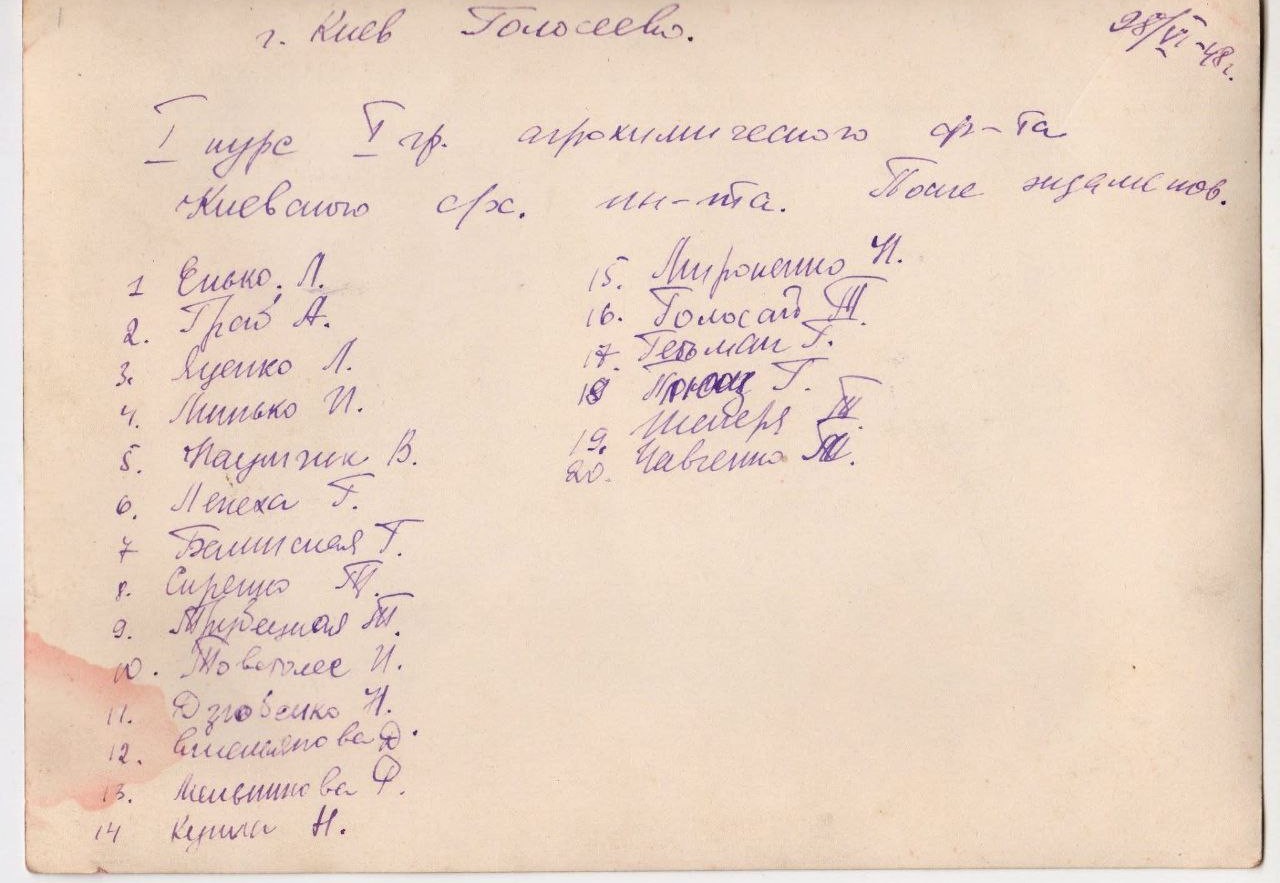 г. Киев Голосеево.
28/VI-48г.
I курс I гр. агрохимического ф-та
Киевского с/х. ин-та. После экзаменов.
1 Енько. Л.
2. Граб А.
3. Яценко Л.
4. Минько И.
5. Наумчик В.
6. Лепеха Г.
7 Белинская Г.
8. Сиренко Т.
9. Трубецкая Т.
10. Товстолес И.
11. Дзюбенко Н.
12. Д.
13. Мельникова Ф.
14 Купила Н.
15. Мироненко Н.
16. Голосай Т.
17. Гетьман Г.
18 Г.
19. Шеперя Т.
20. Чавченко М.